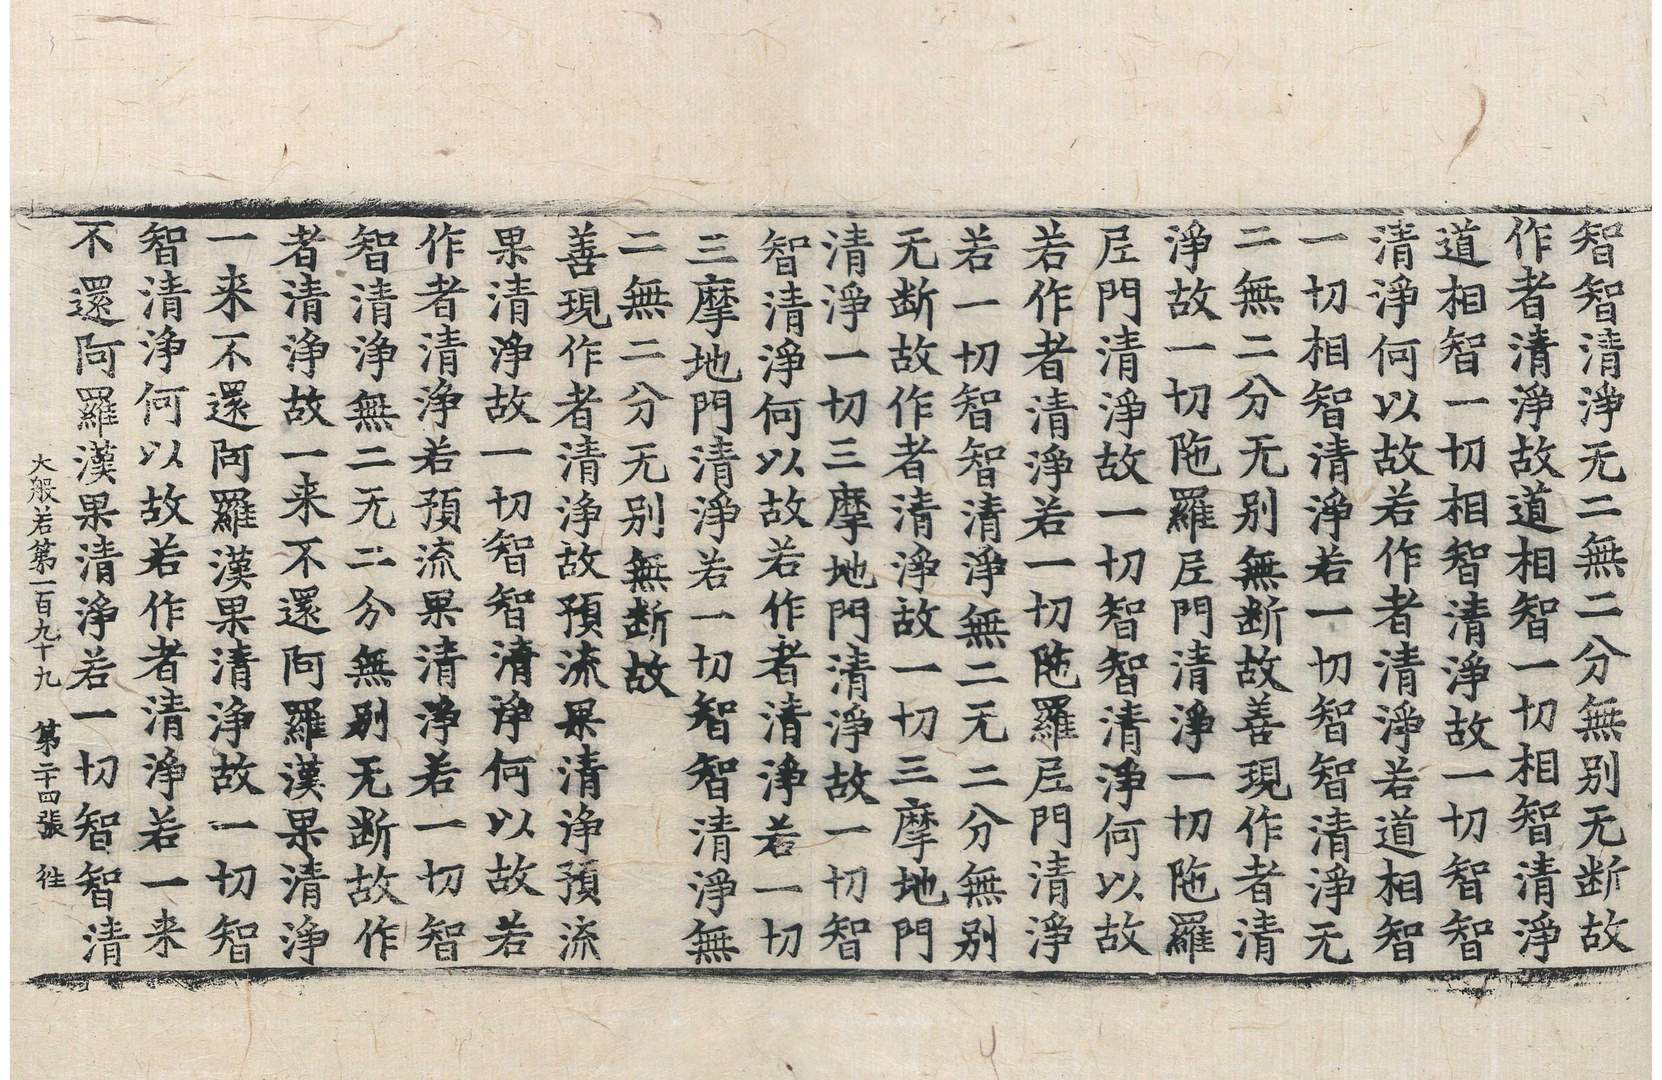 智智清淨无二無二分無別无断故
作者清淨故道相智一切相智清淨
道相智一切相智清淨故一切智智
清淨何以故若作者清淨若道相智
一切相智清淨若一切智智清淨无
二無二分无別無断故善現作者清
淨故一切陁羅尼門清淨一切陁羅
尼門清淨故一切智智清淨何以故
若作者清淨若一切陁羅尼門清淨
若一切智智清淨無二无二分無別
无断故作者清淨故一切三摩地門
清淨一切三摩地門清淨故一切智
智清淨何以故若作者清淨若一切
三摩地門清淨若一切智智清淨無
二無二分无別無断故
善現作者清淨故預流果清淨預流
果清淨故一切智智清淨何以故若
作者清淨若預流果清淨若一切智
智清淨無二无二分無別无断故作
者清淨故一来不還阿羅漢果清淨
一来不還阿羅漢果清淨故一切智
智清淨何以故若作者清淨若一来
不還阿羅漢果清淨若一切智智清
大般若第一百九十九 第二十四張 徃